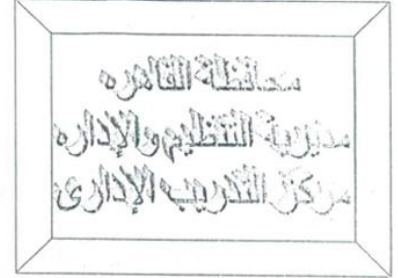 محافظة القاهره
مديرية التنظيم والإداره
مركز التدريب الإدارى